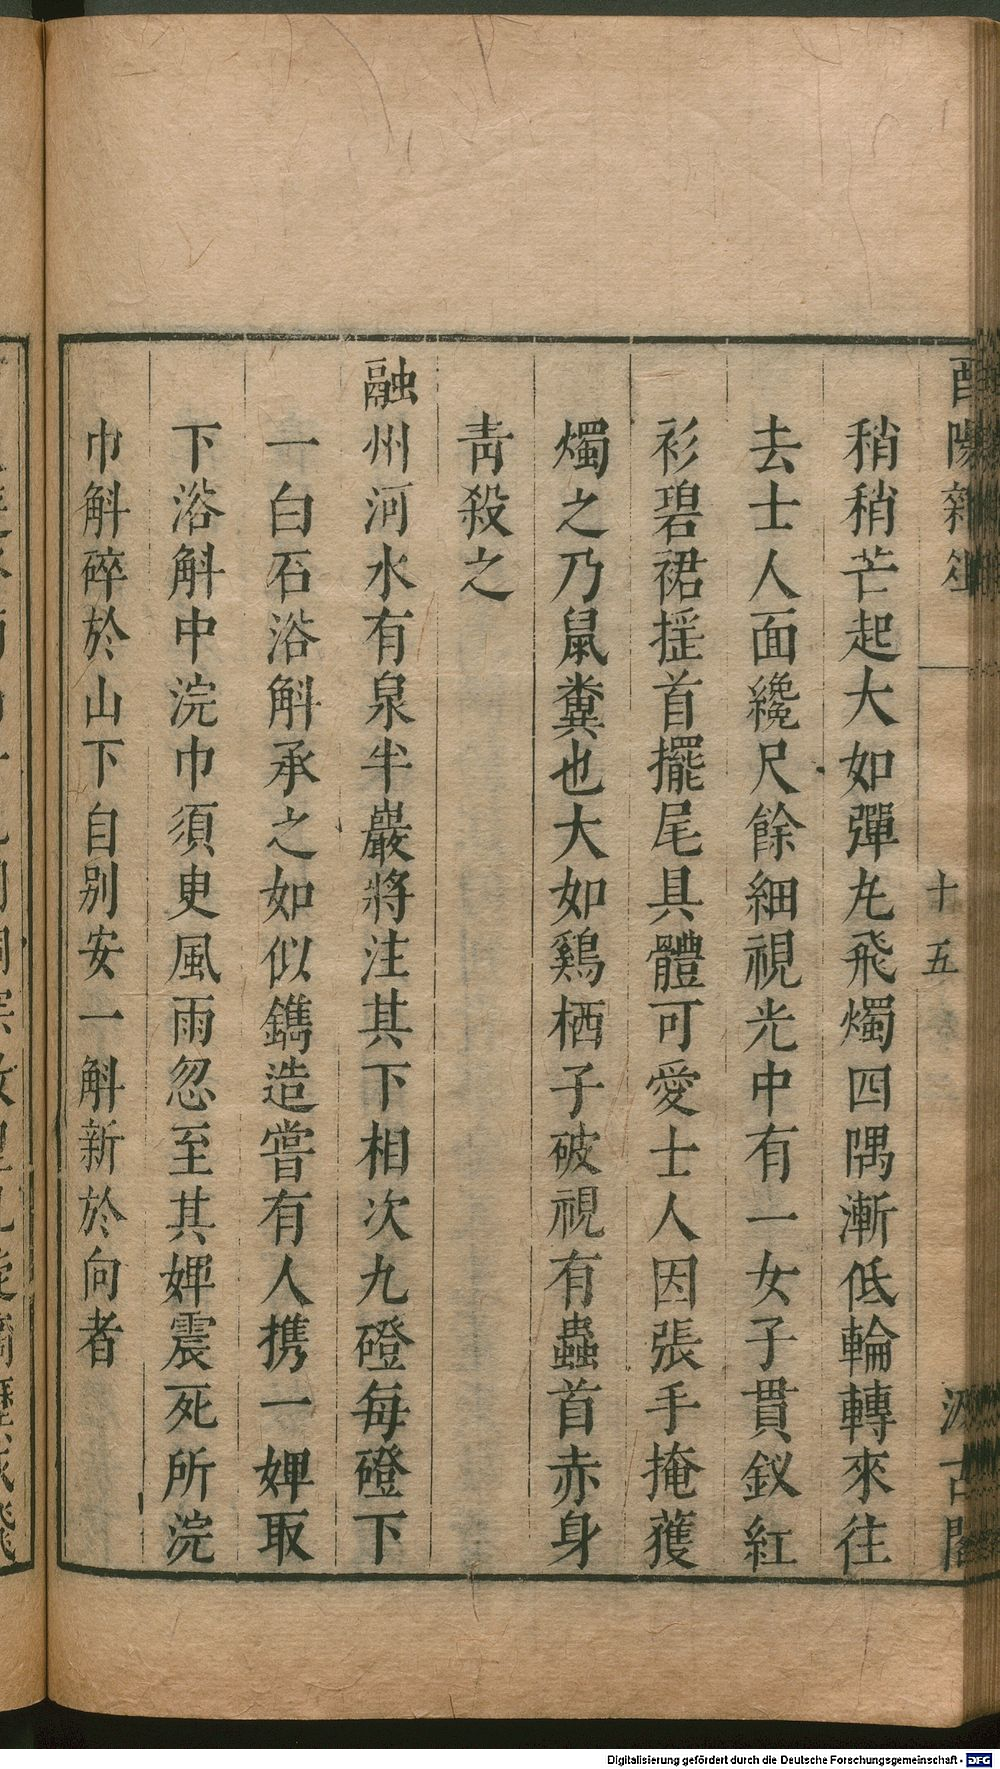 酉陽雜俎
十五
汲古閣
稍稍芒起大如彈丸飛燭四隅漸低輪轉來往
去士人面纔尺餘細視光中有一女子貫釵紅
衫碧裙搖首擺尾具體可愛士人因張手掩獲
燭之乃鼠糞也大如鷄栖子破視有蟲首赤身
靑殺之
融州河水有泉半巖將注其下相次九磴每磴下
一白石浴斛承之如似鐫造嘗有人携一婢取
下浴斛中浣巾須臾風雨忽至其婢震死所浣
巾斛碎於山下自別安一斛新於向者
Digitalisierung gefördert durch die Deutsche Forschungsgemeinschaft - DFG